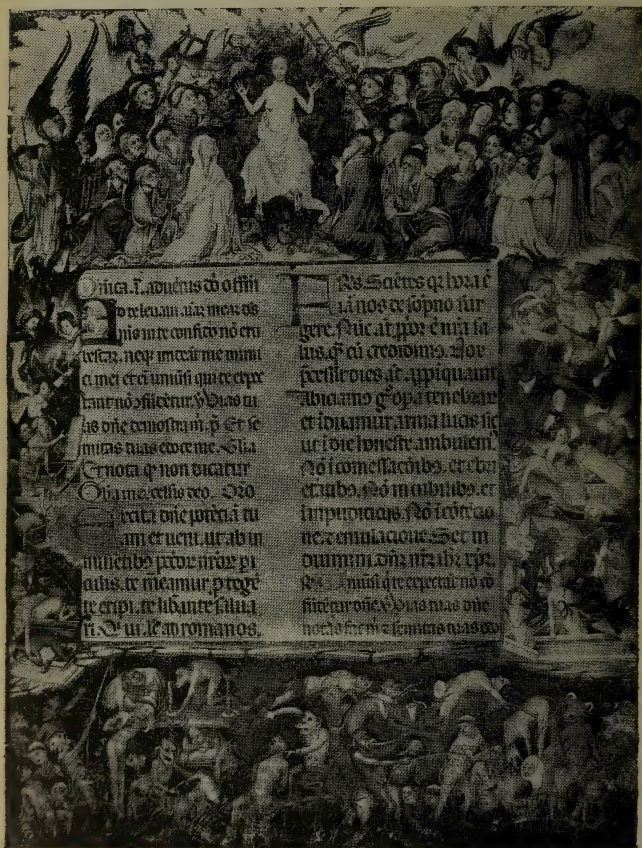 Dñica. I. aduẽtus dõ offiũ
Ad te leuaui. aĩaz meaz de9
me9 in te confido nõ eru
bescã. neqꝫ irrideãt me inimi
ci mei et eĩ uniũsi qui te expe
ctant nõ ↄfũdetur. ℣ Uias tu
as dñe demostra m̃. p̃ Et se
mitas tuas edoce me. Glĩa
Et nota ꝙ non dicatur
Glĩa in excelsis deo. Oro
Excita dñe potẽciã tu
am et ueni. ut ab im
minẽtib9 pctõꝝ nr̃oꝝ pi
culis. te meamur ꝓtegẽ
te eripi. te libãnte salua
ri. Qui. le. ad romanos.
FRs̃. Sciẽtes qꝛ hora ẽ
iã nos de sõpno sur
gere. Nũc aũt ꝓpoꝛ ẽ nr̃a sa
lus. q̃ cũ credidim9. Nox
p̃cessit dies aũt appĩquauit
Abiciam9 gͦ oꝑa tenebraꝝ
et ĩduamur arma lucis sic
ut ĩ die honeste ambulem9
Nõ ĩ comessaciõib9. et ebri
etatib9. Nõ in cubilib9. et
impudiciciis. Nõ ĩ cõtẽcio
ne. et emulacione. Set in
duimini. dñm nr̃m ihm̃ xp̃m.
℟ Uniũsi q̃ te expectãt nõ cõ
fũdetur dñe ℣ Uias tuas dñe
notas fac m̃ et semitas tuas edo